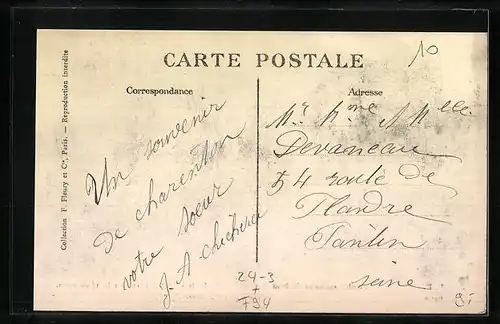 CARTE POSTALE
10
Correspondance
Adresse
Collection F. Fleury et Cie, Paris. — Reproduction interdite
Un souvenir
de charenton
votre soeur
J. A
Mr
Devaneau
54 route de
Flandre
Pantin
seine
24-3
+
794